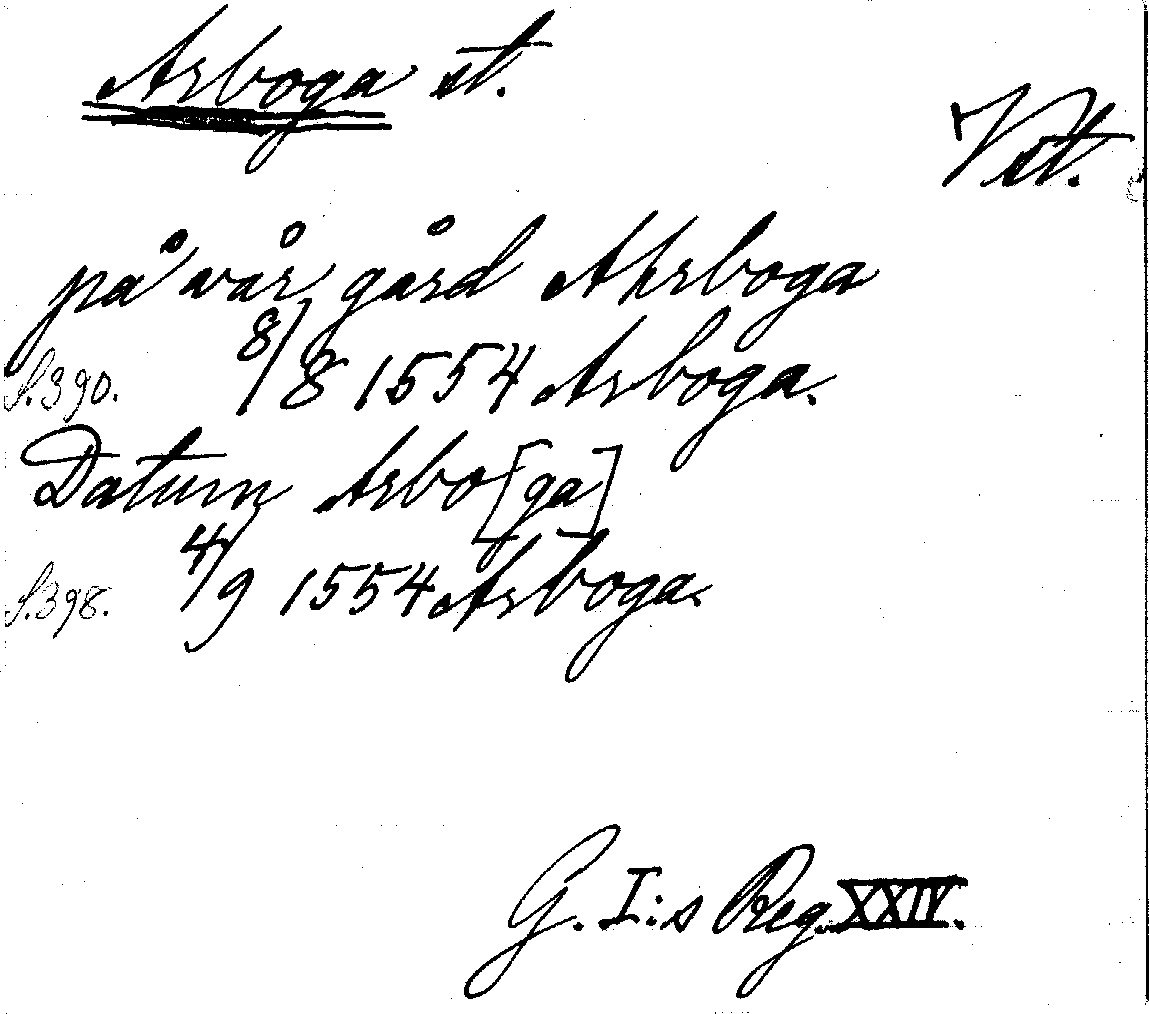 Arboga st.
Vstm.
på vår gård Ahrboga
S. 390. 8/8 1554 Arboga.
Datum Arbo[ga]
S. 398. 4/9 1554 Arboga.
G. I:s Reg. XXIV.